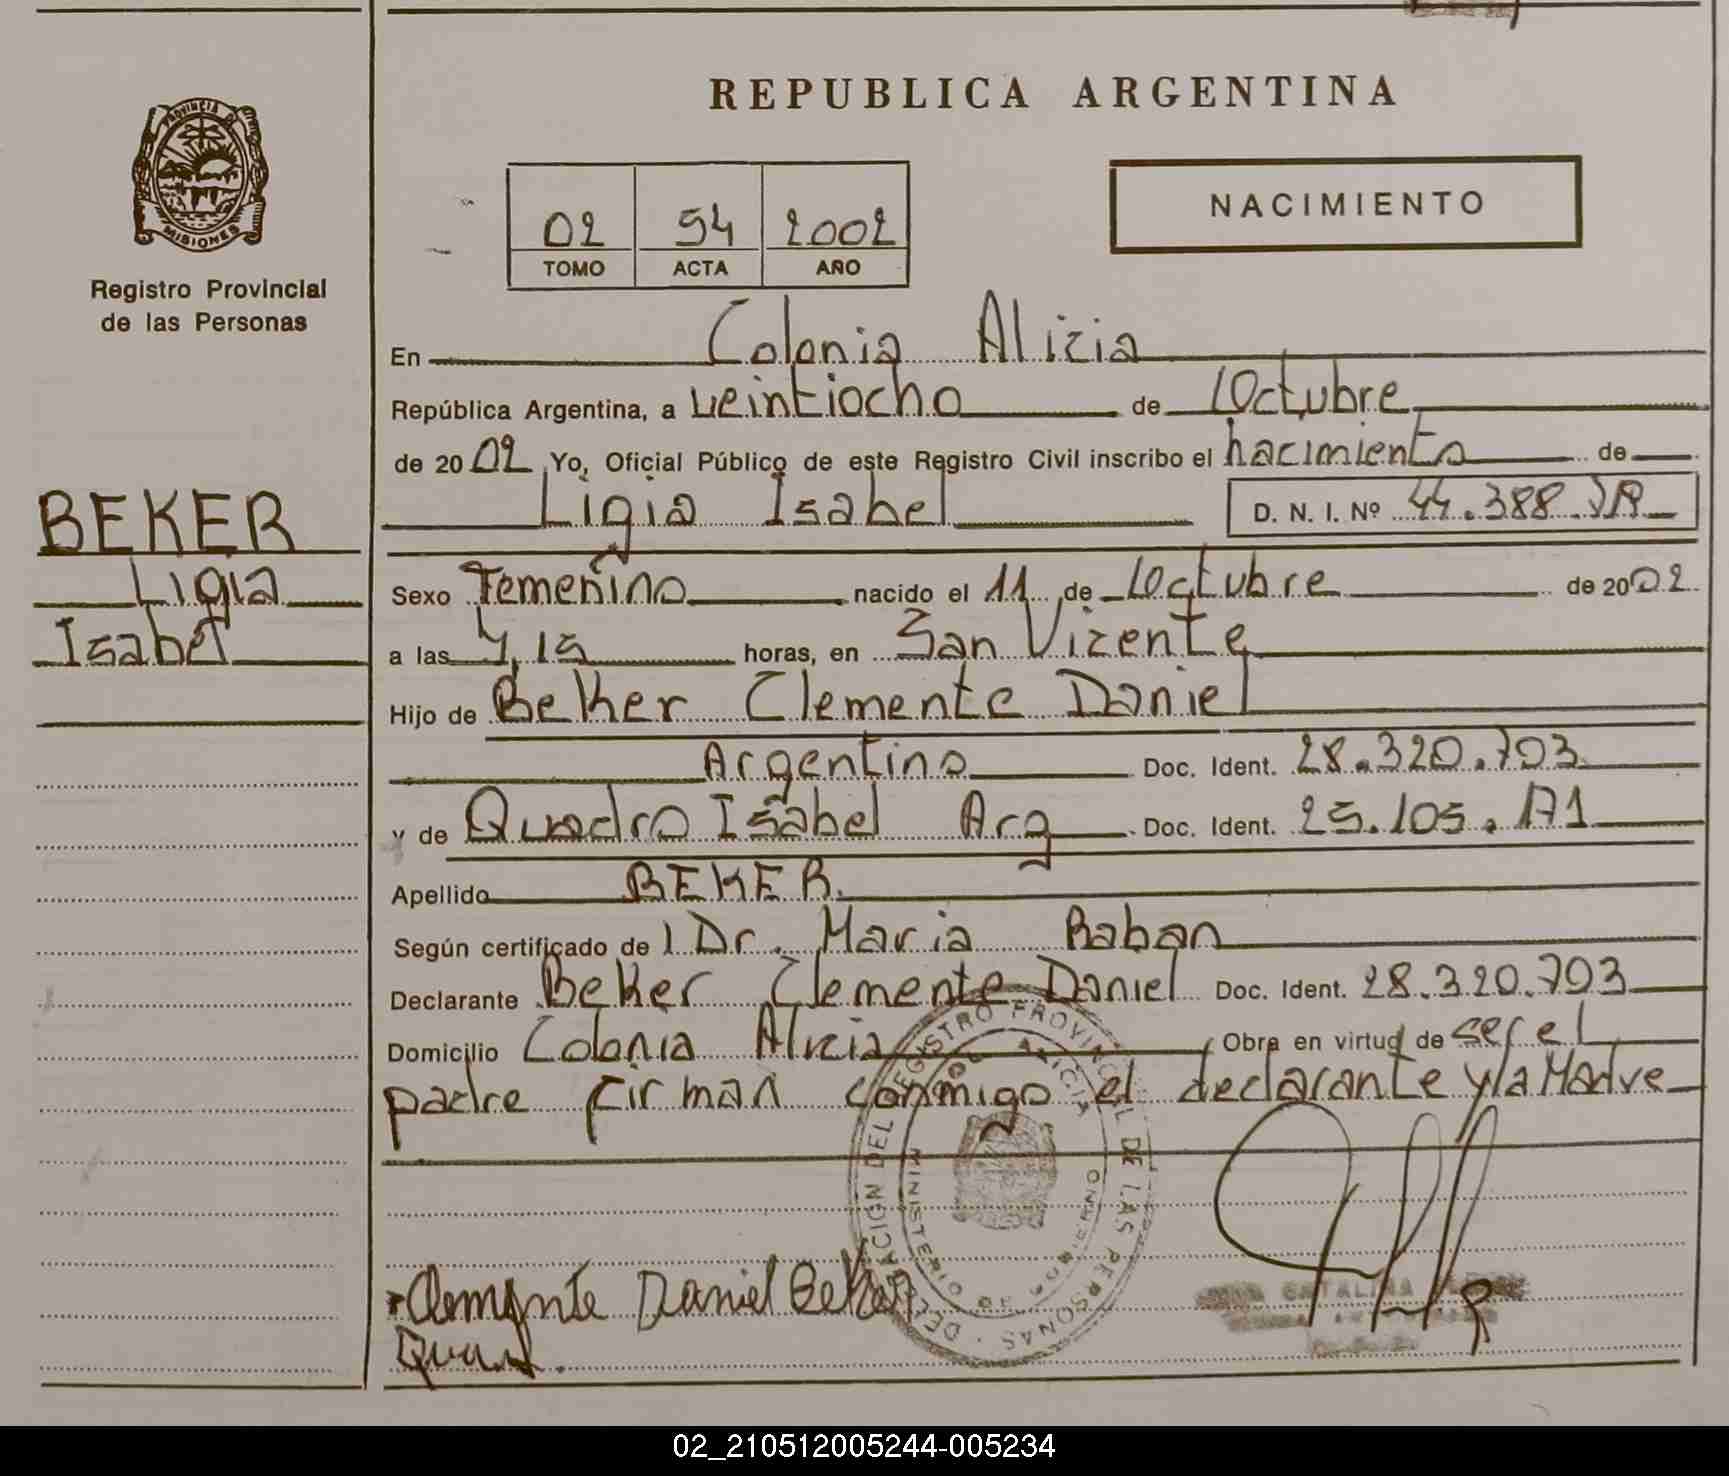 REPUBLICA ARGENTINA
PROVINCIA DE
MISIONES
Registro Provincial
de las Personas
NACIMIENTO
02 54 2002
TOMO ACTA AÑO
En Colonia Alicia
República Argentina, a veintiocho de Octubre
de 2002 Yo, Oficial Público de este Registro Civil inscribo el nacimiento de
Ligia Isabel D. N. I. Nº 44.388.
BEKER
Ligia
Isabel
Sexo Femenino nacido el 11 de Octubre de 2002
a las 4,15 horas, en San Vicente
Hijo de Beker Clemente Daniel
Argentino Doc. Ident. 28.320.703
y de Quadro Isabel Arg Doc. Ident. 25.105.171
Apellido BEKER.
Según certificado de Dr. Maria Raban
Declarante Beker Clemente Daniel Doc. Ident. 28.320.703
Domicilio Colonia Alicia Obra en virtud de ser el
padre firman conmigo el declarante y la Madre
DELEGACION DEL REGISTRO PROVINCIAL DE LAS PERSONAS
MINISTERIO DE GOBIERNO
ALICIA
Clemente Daniel Beker
CATALINA
02_210512005244-005234